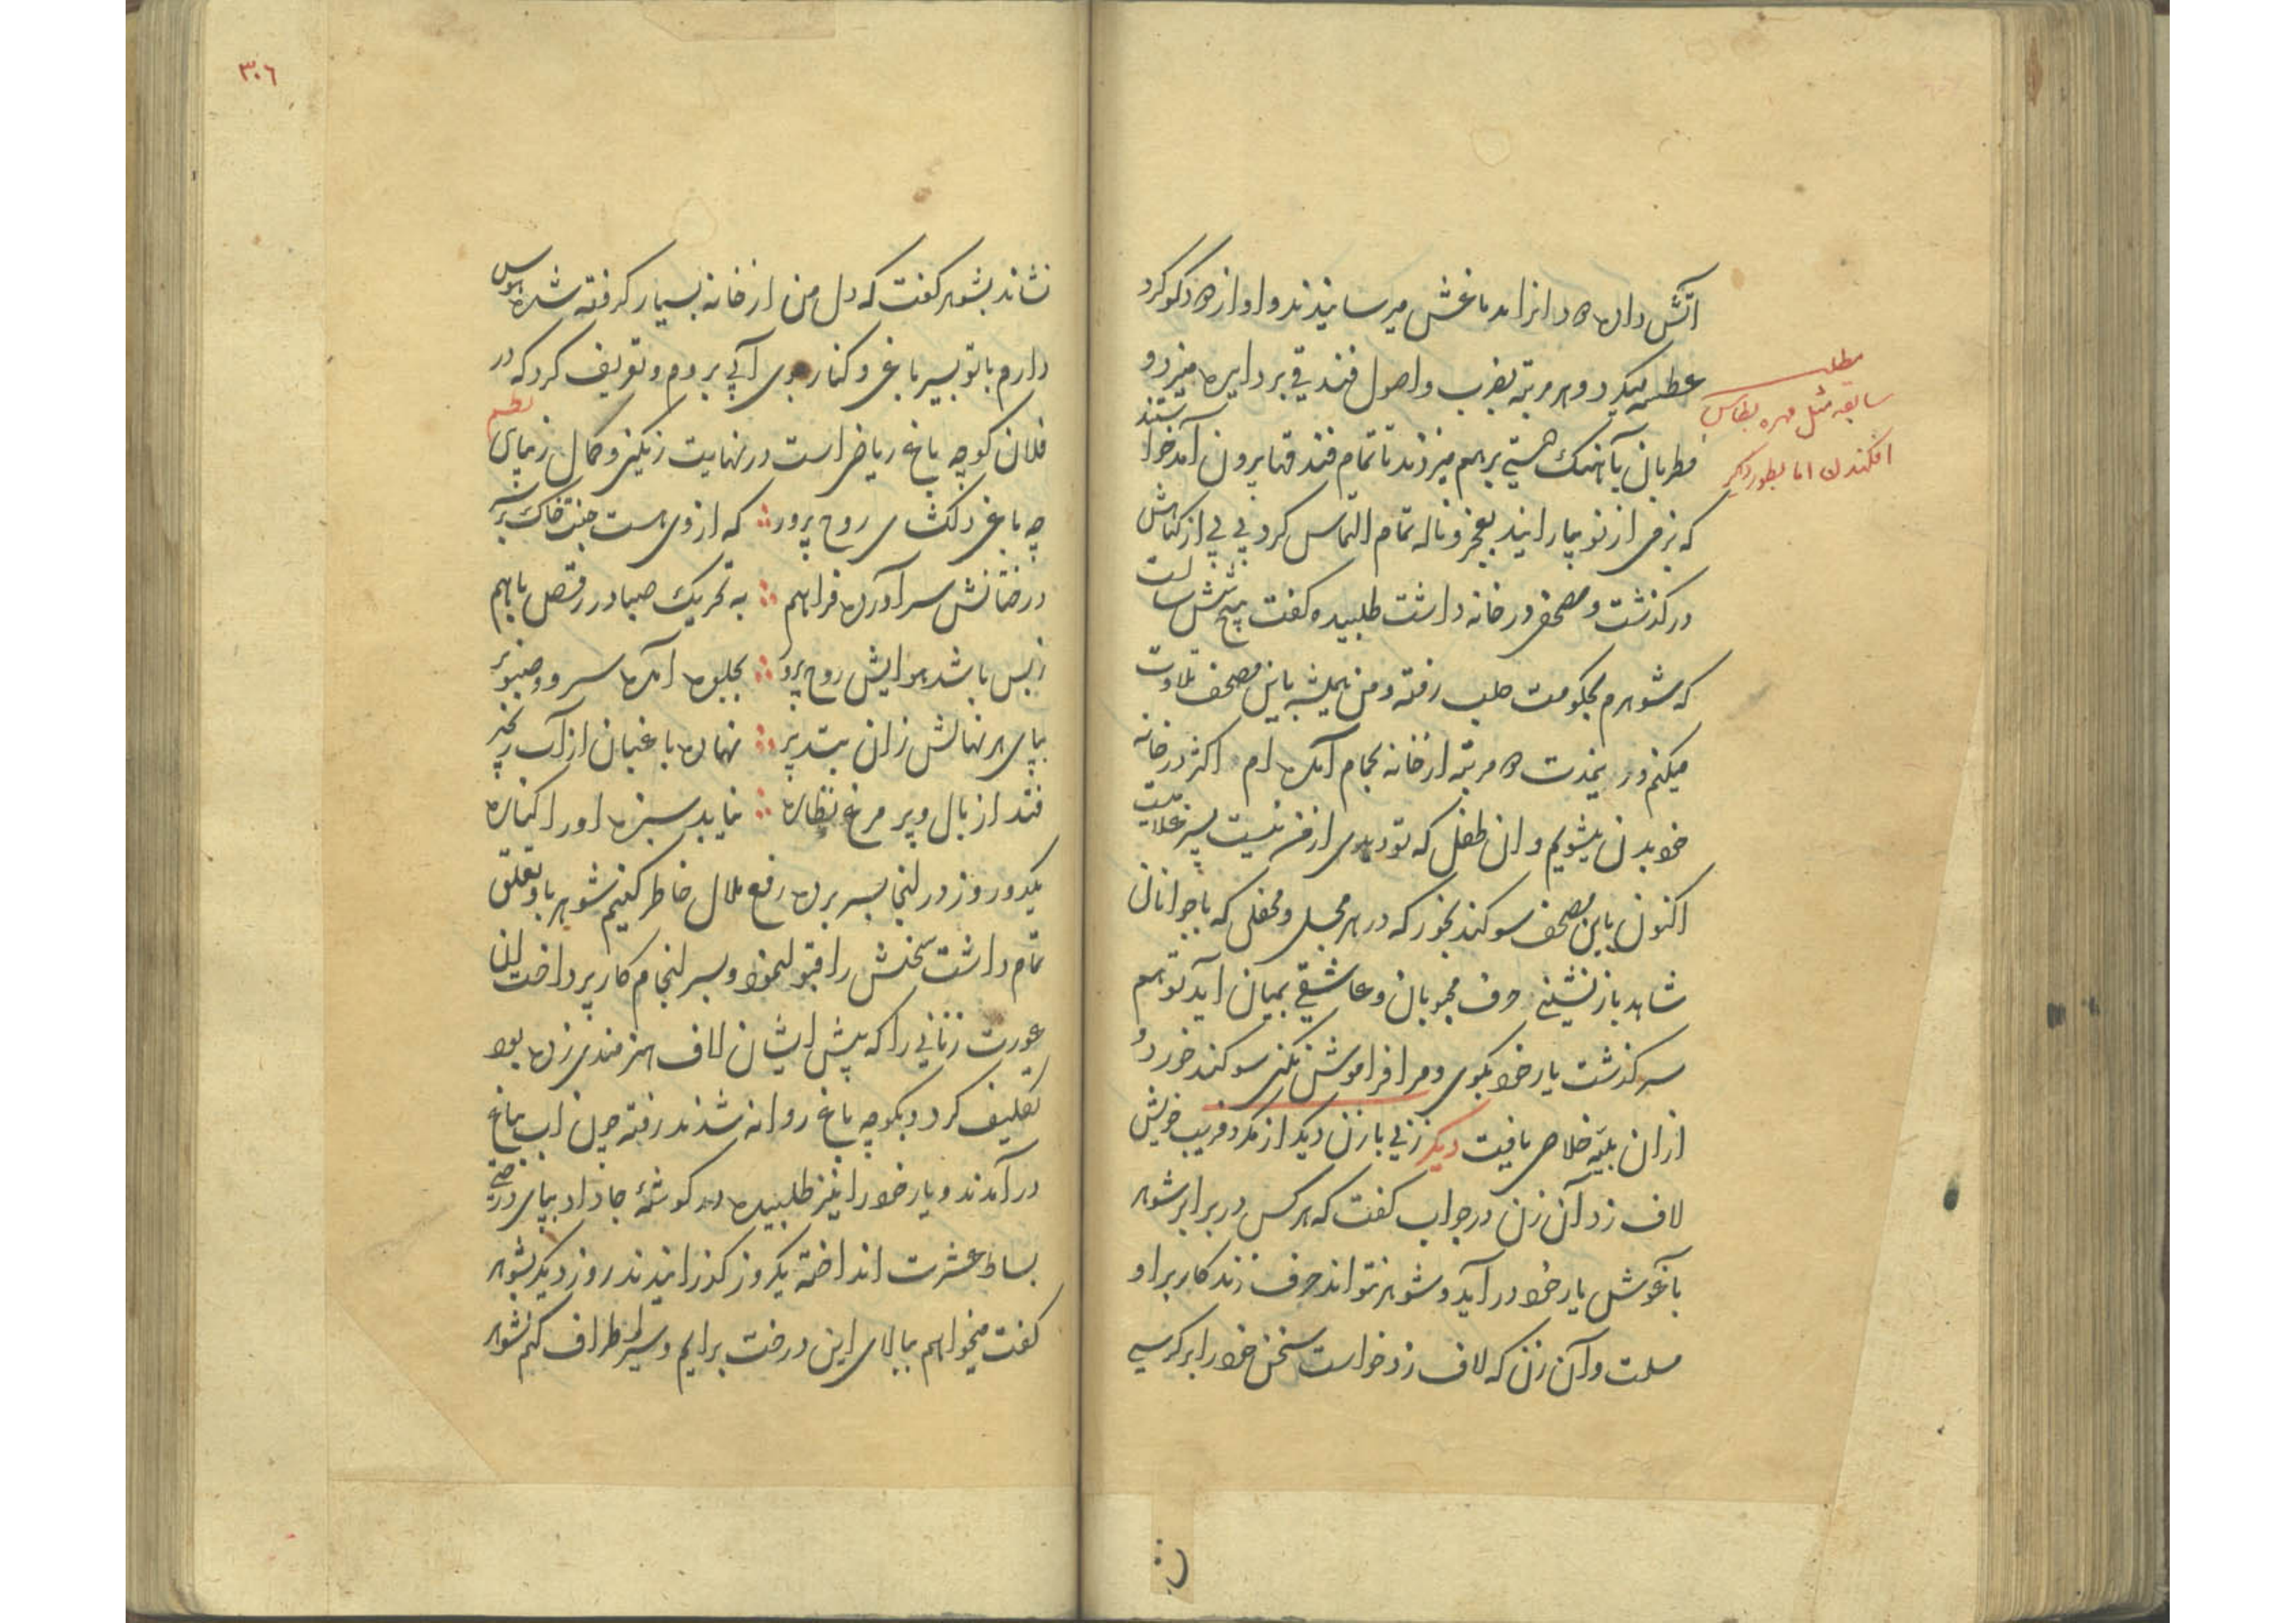 آتش داده دود انرا بدماغش میرسانیدند و او از دود کوکرد
عطسه میکرد و هر مرتبه بضرب و اصول فندقی بر دایره میزد و
مطربان بآهنك هستی برهم میزدند تا تمام فندقها برون آمد خواستند
که بزمی از نو بیارایند بعجز و ناله تمام التماس کرد بی بی از کناهش
درکذشت و مصحفی در خانه داشت طلبیده کفت پنج شش سالست
که شوهرم بحکومت حلب رفته و من همیشه باین مصحف تلاوت
میکنم و درینمدت ده مرتبه از خانه بحمام آمده ام اکثر در خانه
خود بدن میشویم و ان طفل که تو دیدی از من نیست پسر غلامیست
اکنون باین مصحف سوکند بخور که در هر مجلس و محفلی که با جوانان
شاهد باز نشینی حرف محبوبان و عاشقی بمیان آید تو هم
سرکذشت یار خود بکوی و مرا فراموش نکنی سوکند خورد و
ازان بلیه خلاصی یافت دیکر زنی با زن دیکر از مکر و فریب خویش
لاف زد آن زن در جواب کفت که هرکس در برابر شوهر
بآغوش یار خود درآید و شوهر نتواند حرف زند کار بر او
مسلمت و آن زن که لاف زد خواست سخن خود را بر کرسی
مطلب
سابقه مثل مهره بطاس
افکندن اما بطور دیکر
٣٠٦
نشاند بشوهر کفت که دل من از خانه بسیار کرفته شده هوس
دارم با تو بسیر باغی و کنار جوی آبی بروم و تعریف کرد که در
فلان کوچه باغ ریاضی است در نهایت رنکینی و کمال زیبای نظم
چه باغی دلکشای روح پرور که از وی هست جنت خاك بر سر
درختانش سر آورده فراهم به تحریك صبا در رقص باهم
زبس باشد هوایش روح پرور بجلوه آمده سرو و صنوبر
بپای هر نهالش زان بتدبیر نهاده باغبان از آب زنجیر
فتد از بال و پر مرغ نظاره نماید سبزه او را کناره
یکدو روز در انجا بسر برده رفع ملال خاطر کنیم شوهر باو تعلق
تمام داشت سخنش را قبول نمود و بسرانجام کار پرداخت ان
عورت زنانی را که پیش ایشان لاف هنرمندی زده بود
تکلیف کرد و بکوچه باغ روانه شدند رفته چون آب بباغ
درآمدند و یار خود را نیز طلبیده در کوشهٔ جا داد بپای درختی
بساط عشرت انداخته یکروز کذرانیدند روز دیکر بشوهر
کفت میخواهم ببالای این درخت برایم و سیر اطراف کنم شوهر